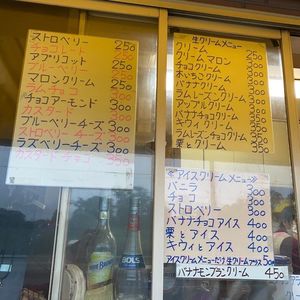 ストロベリー 250
チョコレート 250
アプリコット 250
ブルーベリー 250
マロンクリーム 250
ラムチョコ 300
チョコアーモンド 300
カスタード 300
ブルーベリーチーズ 300
ストロベリーチーズ 300
ラズベリーチーズ 300
カスタードチョコ 350
生クリームメニュー
クリーム 250
クリームマロン
チョコクリーム
木いちごクリーム
バナナクリーム
ラムレーズンクリーム
アップルクリーム
バナナチョコクリーム
キウイクリーム
ラムレーズンチョコクリーム
栗とクリーム
《アイスクリームメニュー》
バニラ 300
チョコ 300
ストロベリー 300
バナナチョコアイス 400
栗とアイス 400
キウイとアイス 400
アイスクリームメニューだけ生クリームプラス 50円
バナナモンブランクリーム 450
BOLS